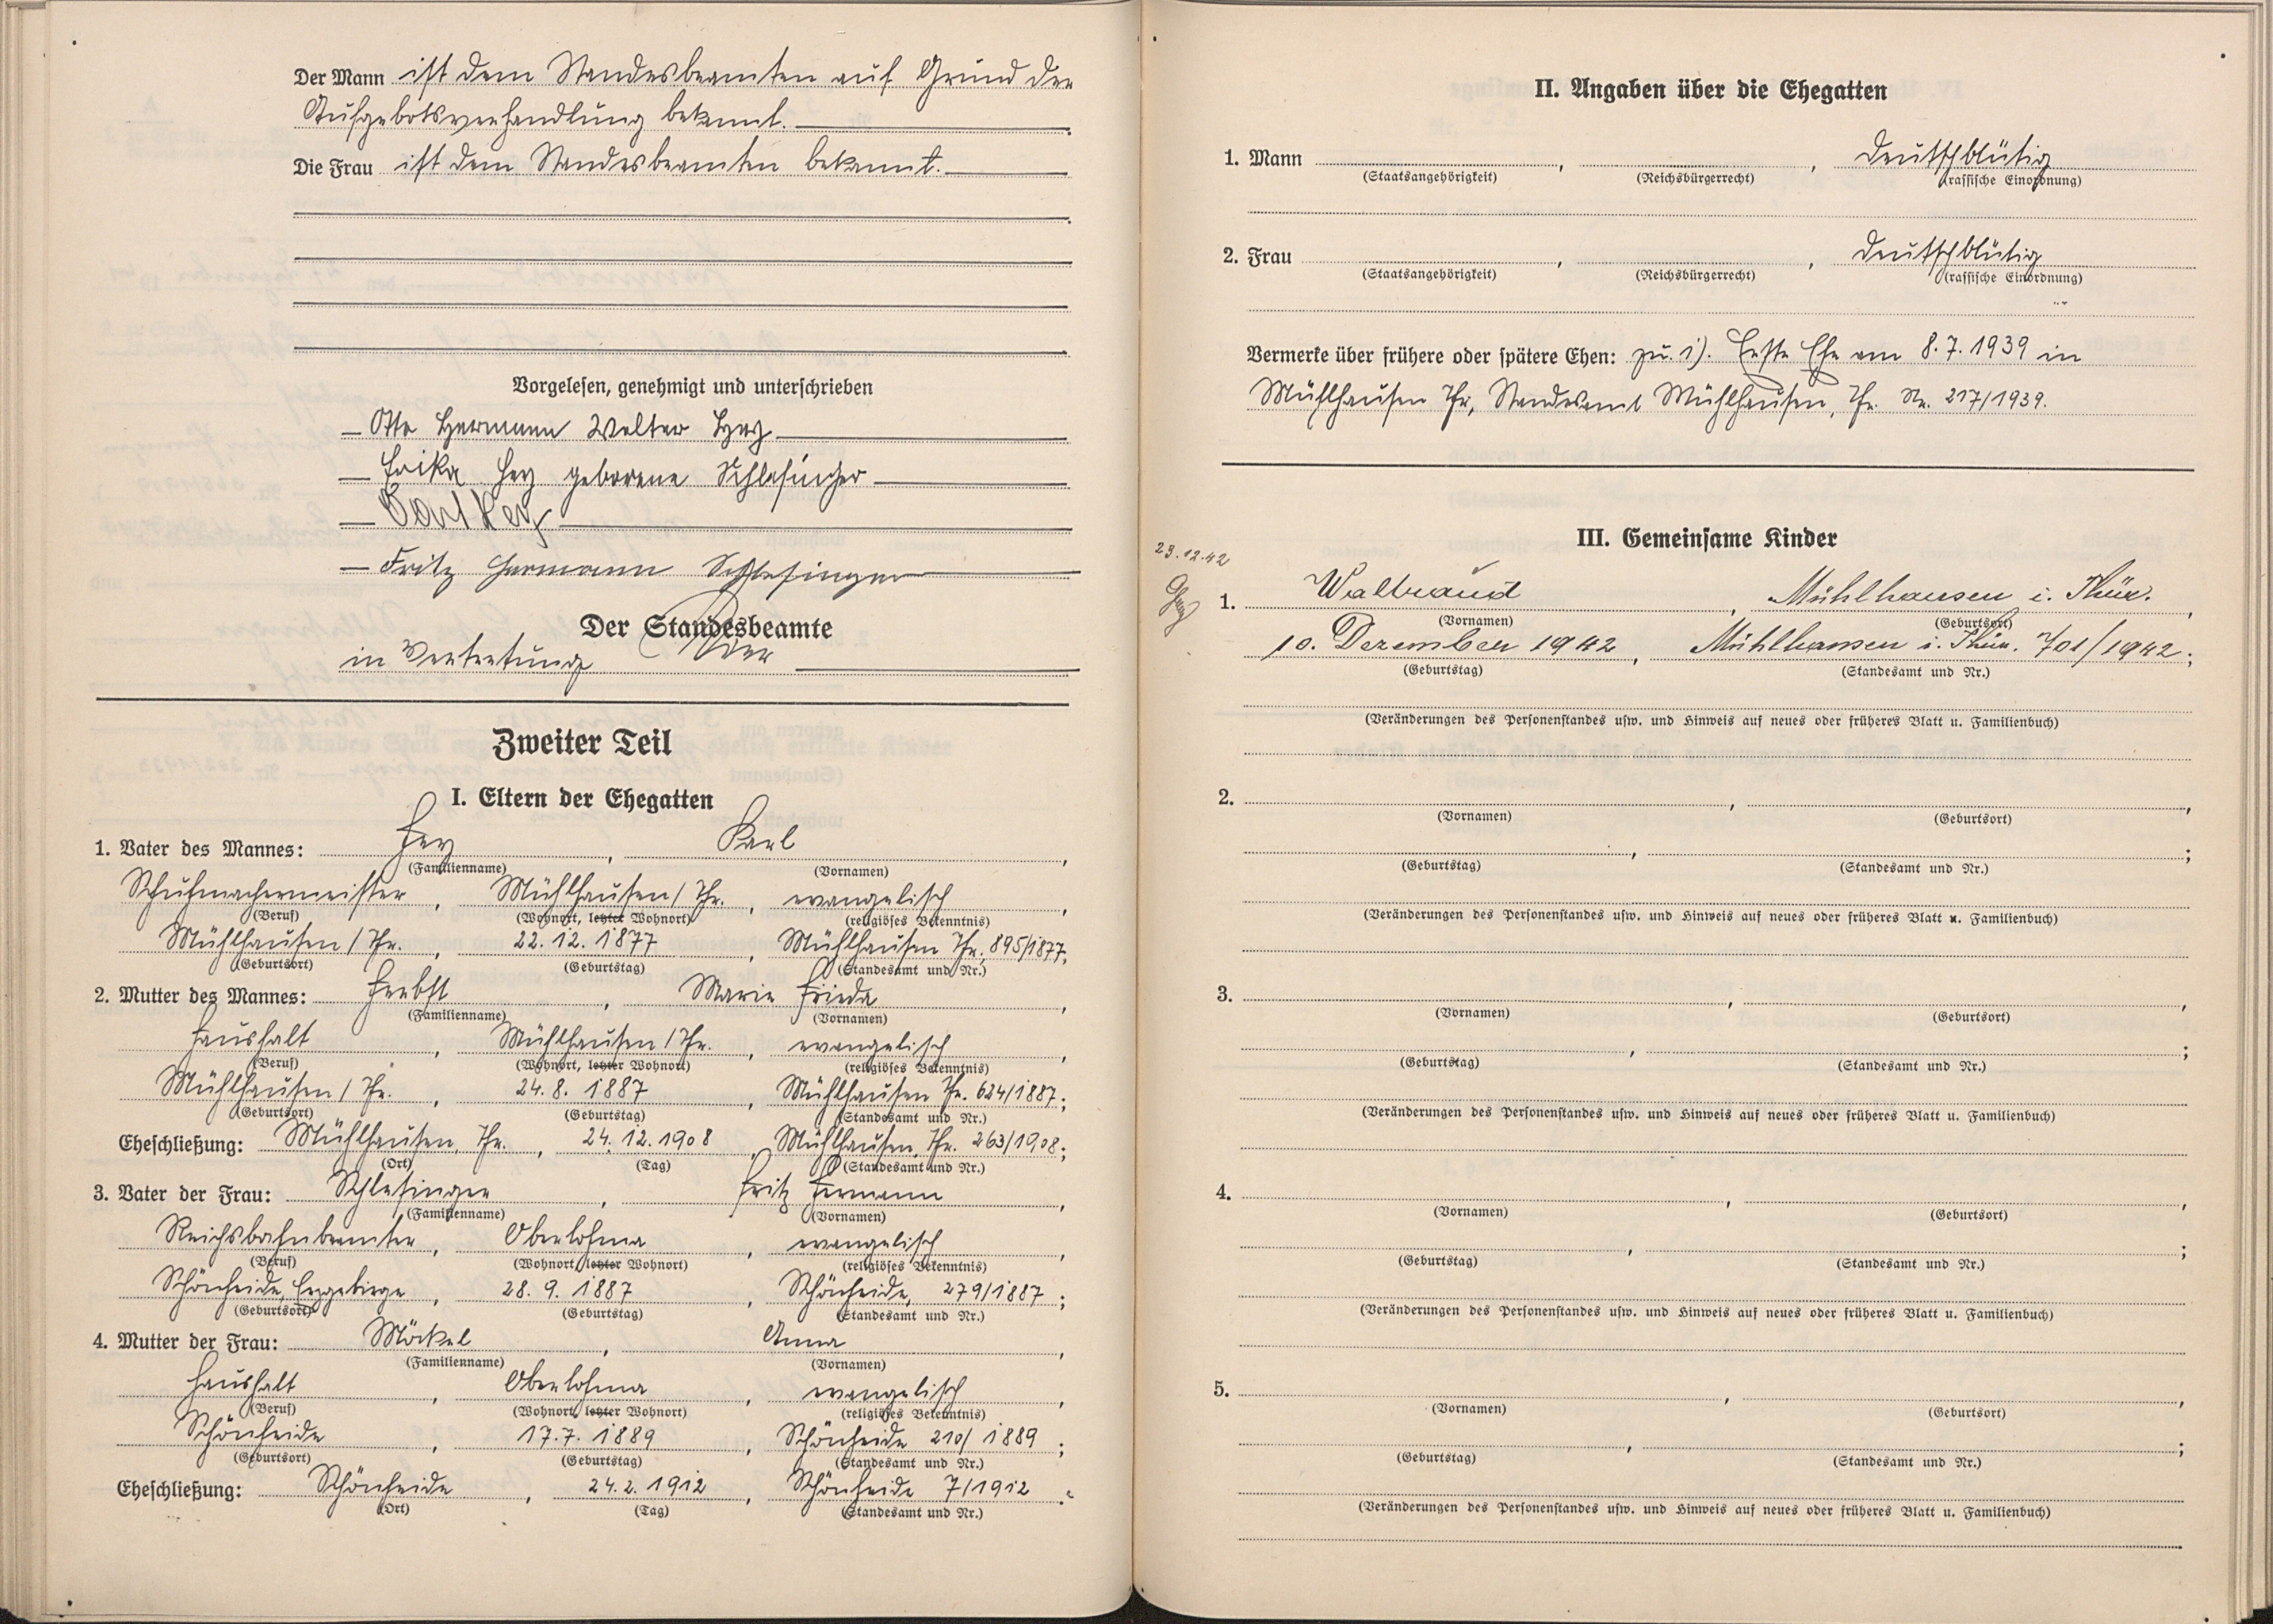 Der Mann ist dem Standesbeamten auf Grund der
Aufgebotsverhandlung bekannt.
Die Frau ist dem Standesbeamten bekannt.
Vorgelesen, genehmigt und unterschrieben
Otto Hermann Walter Hey
Erika Hey geborene Schlesinger
Karl Hey
Fritz Hermann Schlesinger
Der Standesbeamte
in Vertretung
Zweiter Teil
I. Eltern der Ehegatten
1. Vater des Mannes: Hey, Karl,
(Familienname) (Vornamen)
Schuhmachermeister, Mühlhausen / Thr., evangelisch,
(Beruf) (Wohnort, letzter Wohnort) (religiöses Bekenntnis)
Mühlhausen / Thr., 22.12.1877, Mühlhausen Thr. 895/1877;
(Geburtsort) (Geburtstag) (Standesamt und Nr.)
2. Mutter des Mannes: Herbst, Marie Frieda,
(Familienname) (Vornamen)
Haushalt, Mühlhausen / Thr., evangelisch,
(Beruf) (Wohnort, letzter Wohnort) (religiöses Bekenntnis)
Mühlhausen / Thr., 24.8.1887, Mühlhausen Thr. 624/1887;
(Geburtsort) (Geburtstag) (Standesamt und Nr.)
Eheschließung: Mühlhausen, Thr., 24.12.1908, Mühlhausen, Thr. 263/1908;
(Ort) (Tag) (Standesamt und Nr.)
3. Vater der Frau: Schlesinger, Fritz Hermann,
(Familienname) (Vornamen)
Reichsbahnbeamter, Oberlohma, evangelisch,
(Beruf) (Wohnort, letzter Wohnort) (religiöses Bekenntnis)
Schönheide, Erzgebirge, 28.9.1887, Schönheide, 279/1887;
(Geburtsort) (Geburtstag) (Standesamt und Nr.)
4. Mutter der Frau: Möckel, Anna,
(Familienname) (Vornamen)
Haushalt, Oberlohma, evangelisch,
(Beruf) (Wohnort, letzter Wohnort) (religiöses Bekenntnis)
Schönheide, 17.7.1889, Schönheide 210/1889;
(Geburtsort) (Geburtstag) (Standesamt und Nr.)
Eheschließung: Schönheide, 24.2.1912, Schönheide 7/1912.
(Ort) (Tag) (Standesamt und Nr.)
II. Angaben über die Ehegatten
1. Mann , , deutschblütig
(Staatsangehörigkeit) (Reichsbürgerrecht) (rassische Einordnung)
2. Frau , , deutschblütig
(Staatsangehörigkeit) (Reichsbürgerrecht) (rassische Einordnung)
Vermerke über frühere oder spätere Ehen: zu 1). Erste Ehe am 8.7.1939 in
Mühlhausen Thr, Standesamt Mühlhausen, Thr. Nr. 217/1939.
III. Gemeinsame Kinder
23.12.42
1. Waltraud, Mühlhausen i. Thür.,
(Vornamen) (Geburtsort)
10. Dezember 1942, Mühlhausen i. Thür. 701/1942;
(Geburtstag) (Standesamt und Nr.)
(Veränderungen des Personenstandes usw. und Hinweis auf neues oder früheres Blatt u. Familienbuch)
2. , ,
(Vornamen) (Geburtsort)
, ;
(Geburtstag) (Standesamt und Nr.)
(Veränderungen des Personenstandes usw. und Hinweis auf neues oder früheres Blatt u. Familienbuch)
3. , ,
(Vornamen) (Geburtsort)
, ;
(Geburtstag) (Standesamt und Nr.)
(Veränderungen des Personenstandes usw. und Hinweis auf neues oder früheres Blatt u. Familienbuch)
4. , ,
(Vornamen) (Geburtsort)
, ;
(Geburtstag) (Standesamt und Nr.)
(Veränderungen des Personenstandes usw. und Hinweis auf neues oder früheres Blatt u. Familienbuch)
5. , ,
(Vornamen) (Geburtsort)
, ;
(Geburtstag) (Standesamt und Nr.)
(Veränderungen des Personenstandes usw. und Hinweis auf neues oder früheres Blatt u. Familienbuch)